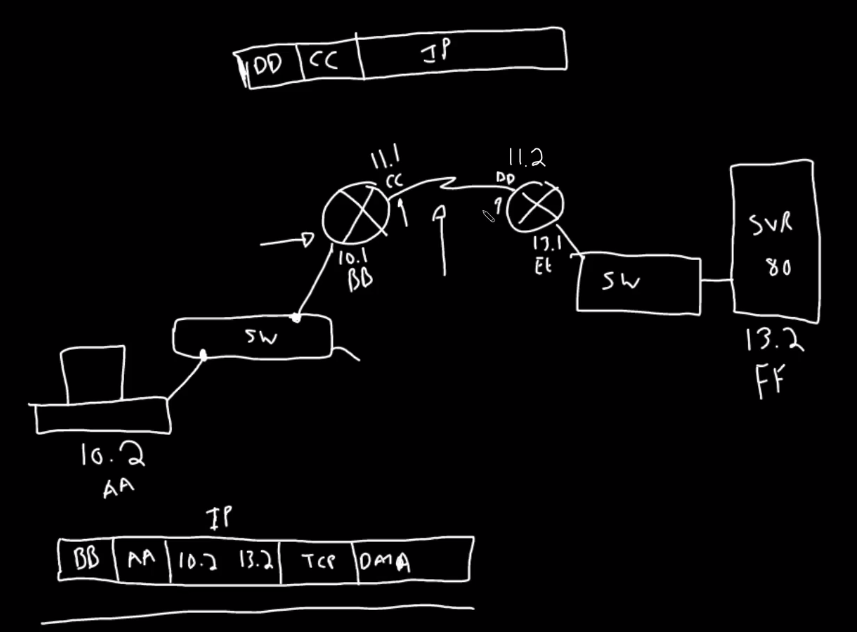 DD CC IP
11.1
CC
11.2
DD
10.1
BB
13.1
EE
SVR
80
SW
SW
13.2
FF
10.2
AA
IP
BB AA 10.2 13.2 TCP DATA